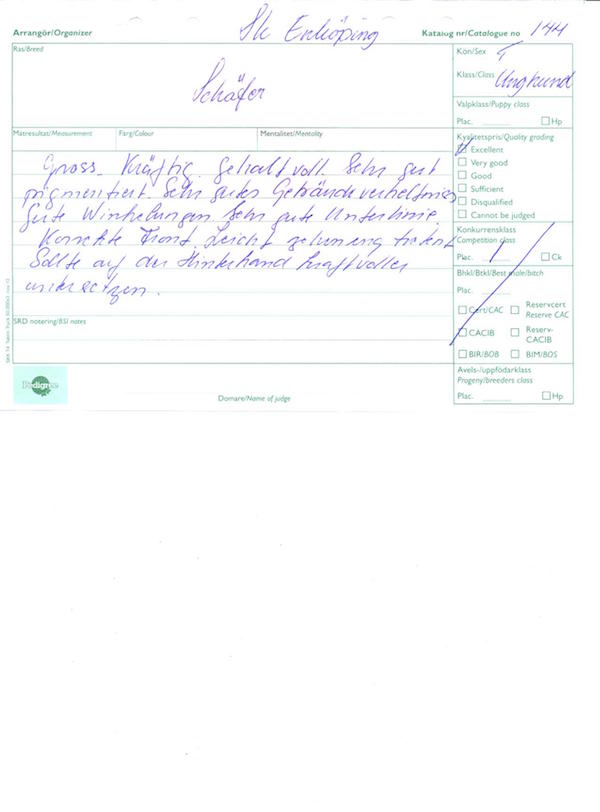 Arrangör/Organizer Sk Enköping Katalog nr/Catalogue no 144
Ras/Breed Schäfer
Kön/Sex T
Klass/Class Unghund
Valpklass/Puppy class
Plac. Hp
Matresultat/Measurement Färg/Colour Mentalitet/Mentality
Gross. Kräftig. gehaltvoll. Sehr gut
pigmentiert. Sehr gutes Gebäudeverhältniss
Gute Winkelungen. Sehr gute Unterlinie.
Korrekte Front. Leicht
Sollte auf der Hinterhand kraftvoller
untersetzen.
SRD notering/BSI notes
Kvalitetspris/Quality grading
Excellent
Very good
Good
Sufficient
Disqualified
Cannot be judged
Konkurrensklass
Competition class
Plac. 1 Ck
Bhkl/Btkl/Best male/bitch
Plac.
Cert/CAC Reservcert
Reserve CAC
CACIB Reserv-
CACIB
BIR/BOB BIM/BOS
Avels-/uppfödarklass
Progeny/breeders class
Plac. Hp
Pedigree
Domare/Name of judge